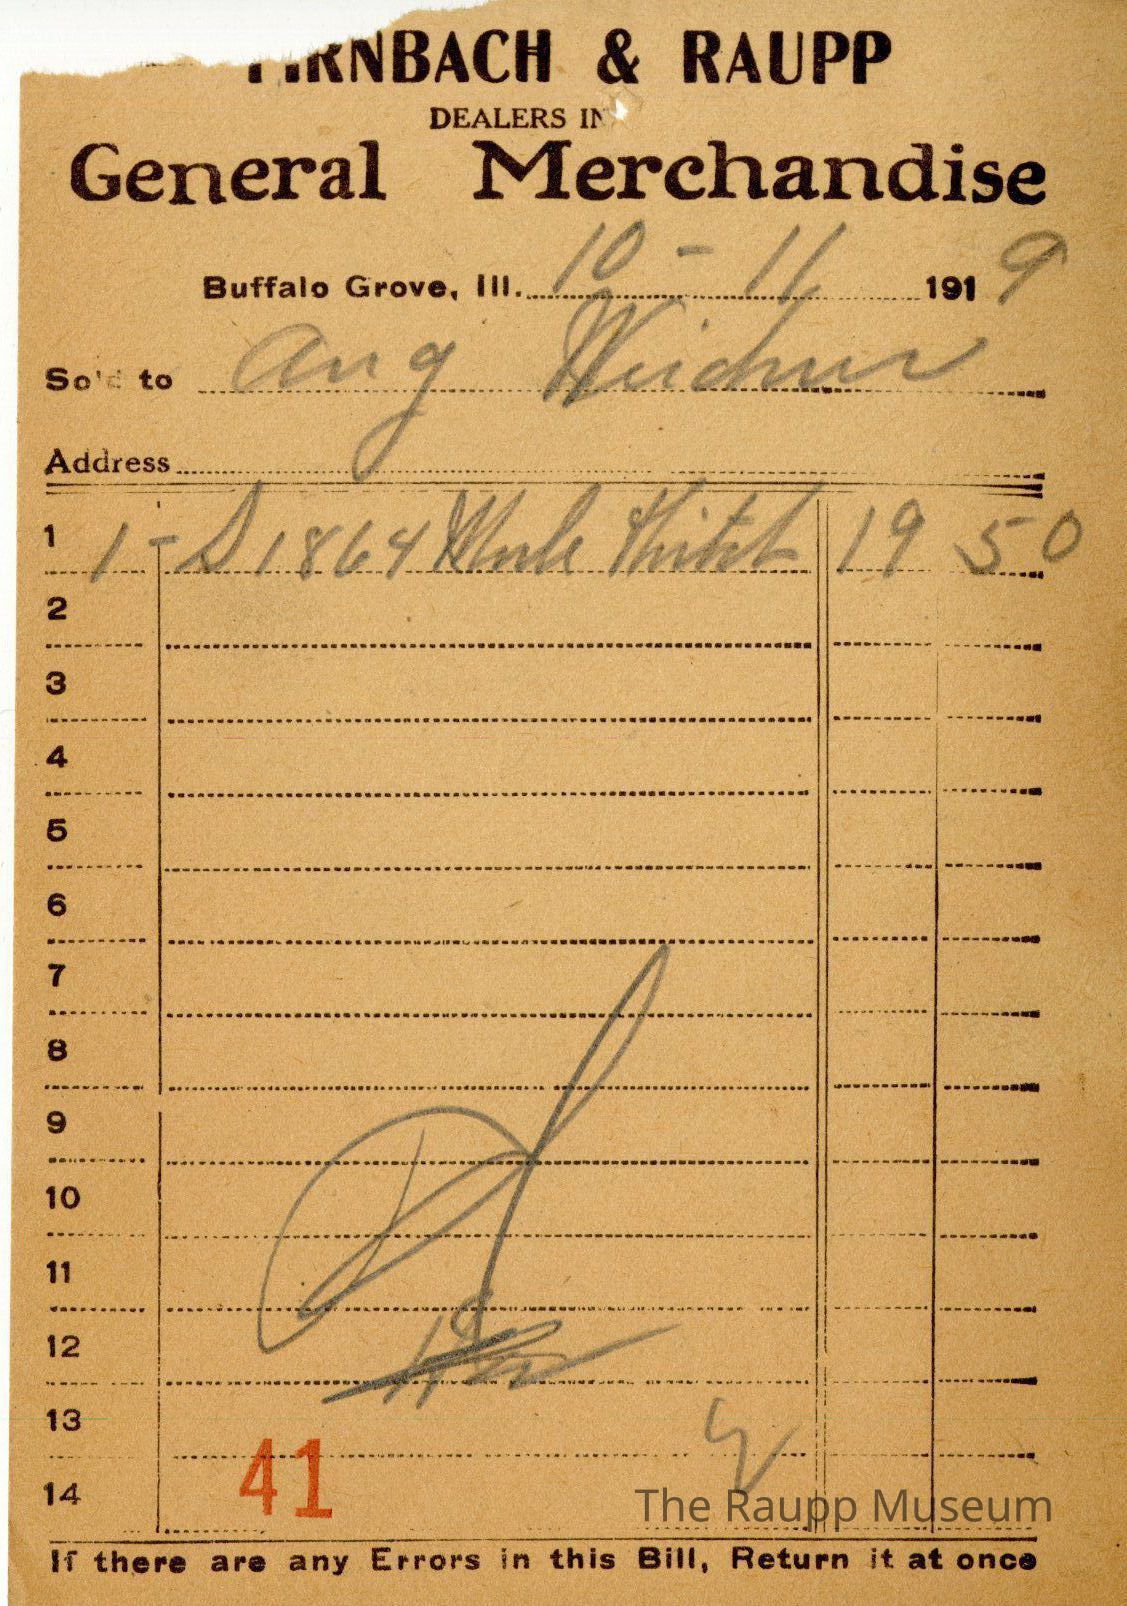 RNBACH & RAUPP
DEALERS IN
General Merchandise
Buffalo Grove, Ill. 10 - 11 1919
Sold to Aug Weidner
Address
1 1 - S 1864 19 50
2
3
4
5
6
7
8
9
10
11
12
13
14
41
The Raupp Museum
If there are any Errors in this Bill, Return it at once